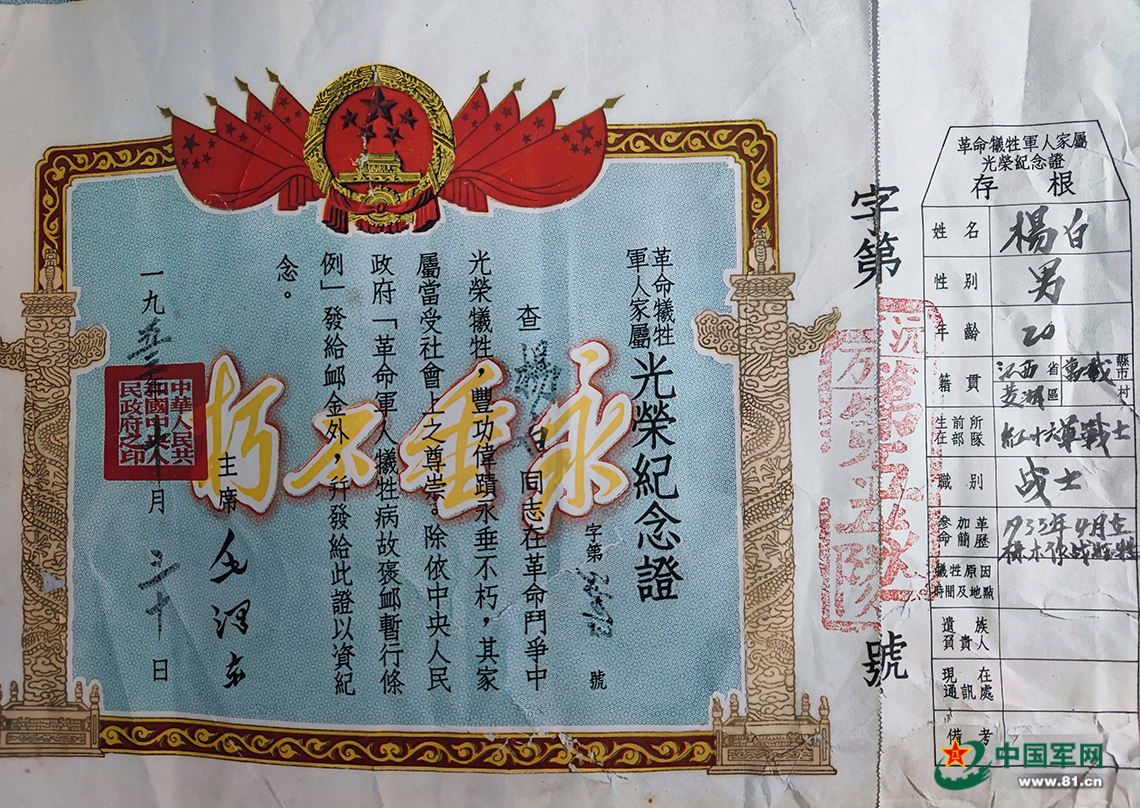 革命犧牲
軍人家屬
光榮紀念證
字第
號
查 楊白 同志在革命鬥爭中
光榮犧牲，豐功偉蹟永垂不朽，其家
屬當受社會上之尊崇。除依中央人民
政府「革命軍人犧牲病故褒卹暫行條
例」發給卹金外，并發給此證以資紀
念。
主席 毛澤東
一九五 月二十日
中華人民共
和國中央人
民政府之印
永垂不朽
字第
號
革命犧牲軍人家屬
光榮紀念證
存根
姓名 楊白
性別 男
年齡 20
籍貫 江西省萬載縣市
區 村
生前所在部隊 紅十六軍戰士
職別 战士
參加革命簡歷 1933年4月在
作战牺牲
犧牲原因時間及地點
遺族負責人
現在通訊處
備考
中国军网
www.81.cn